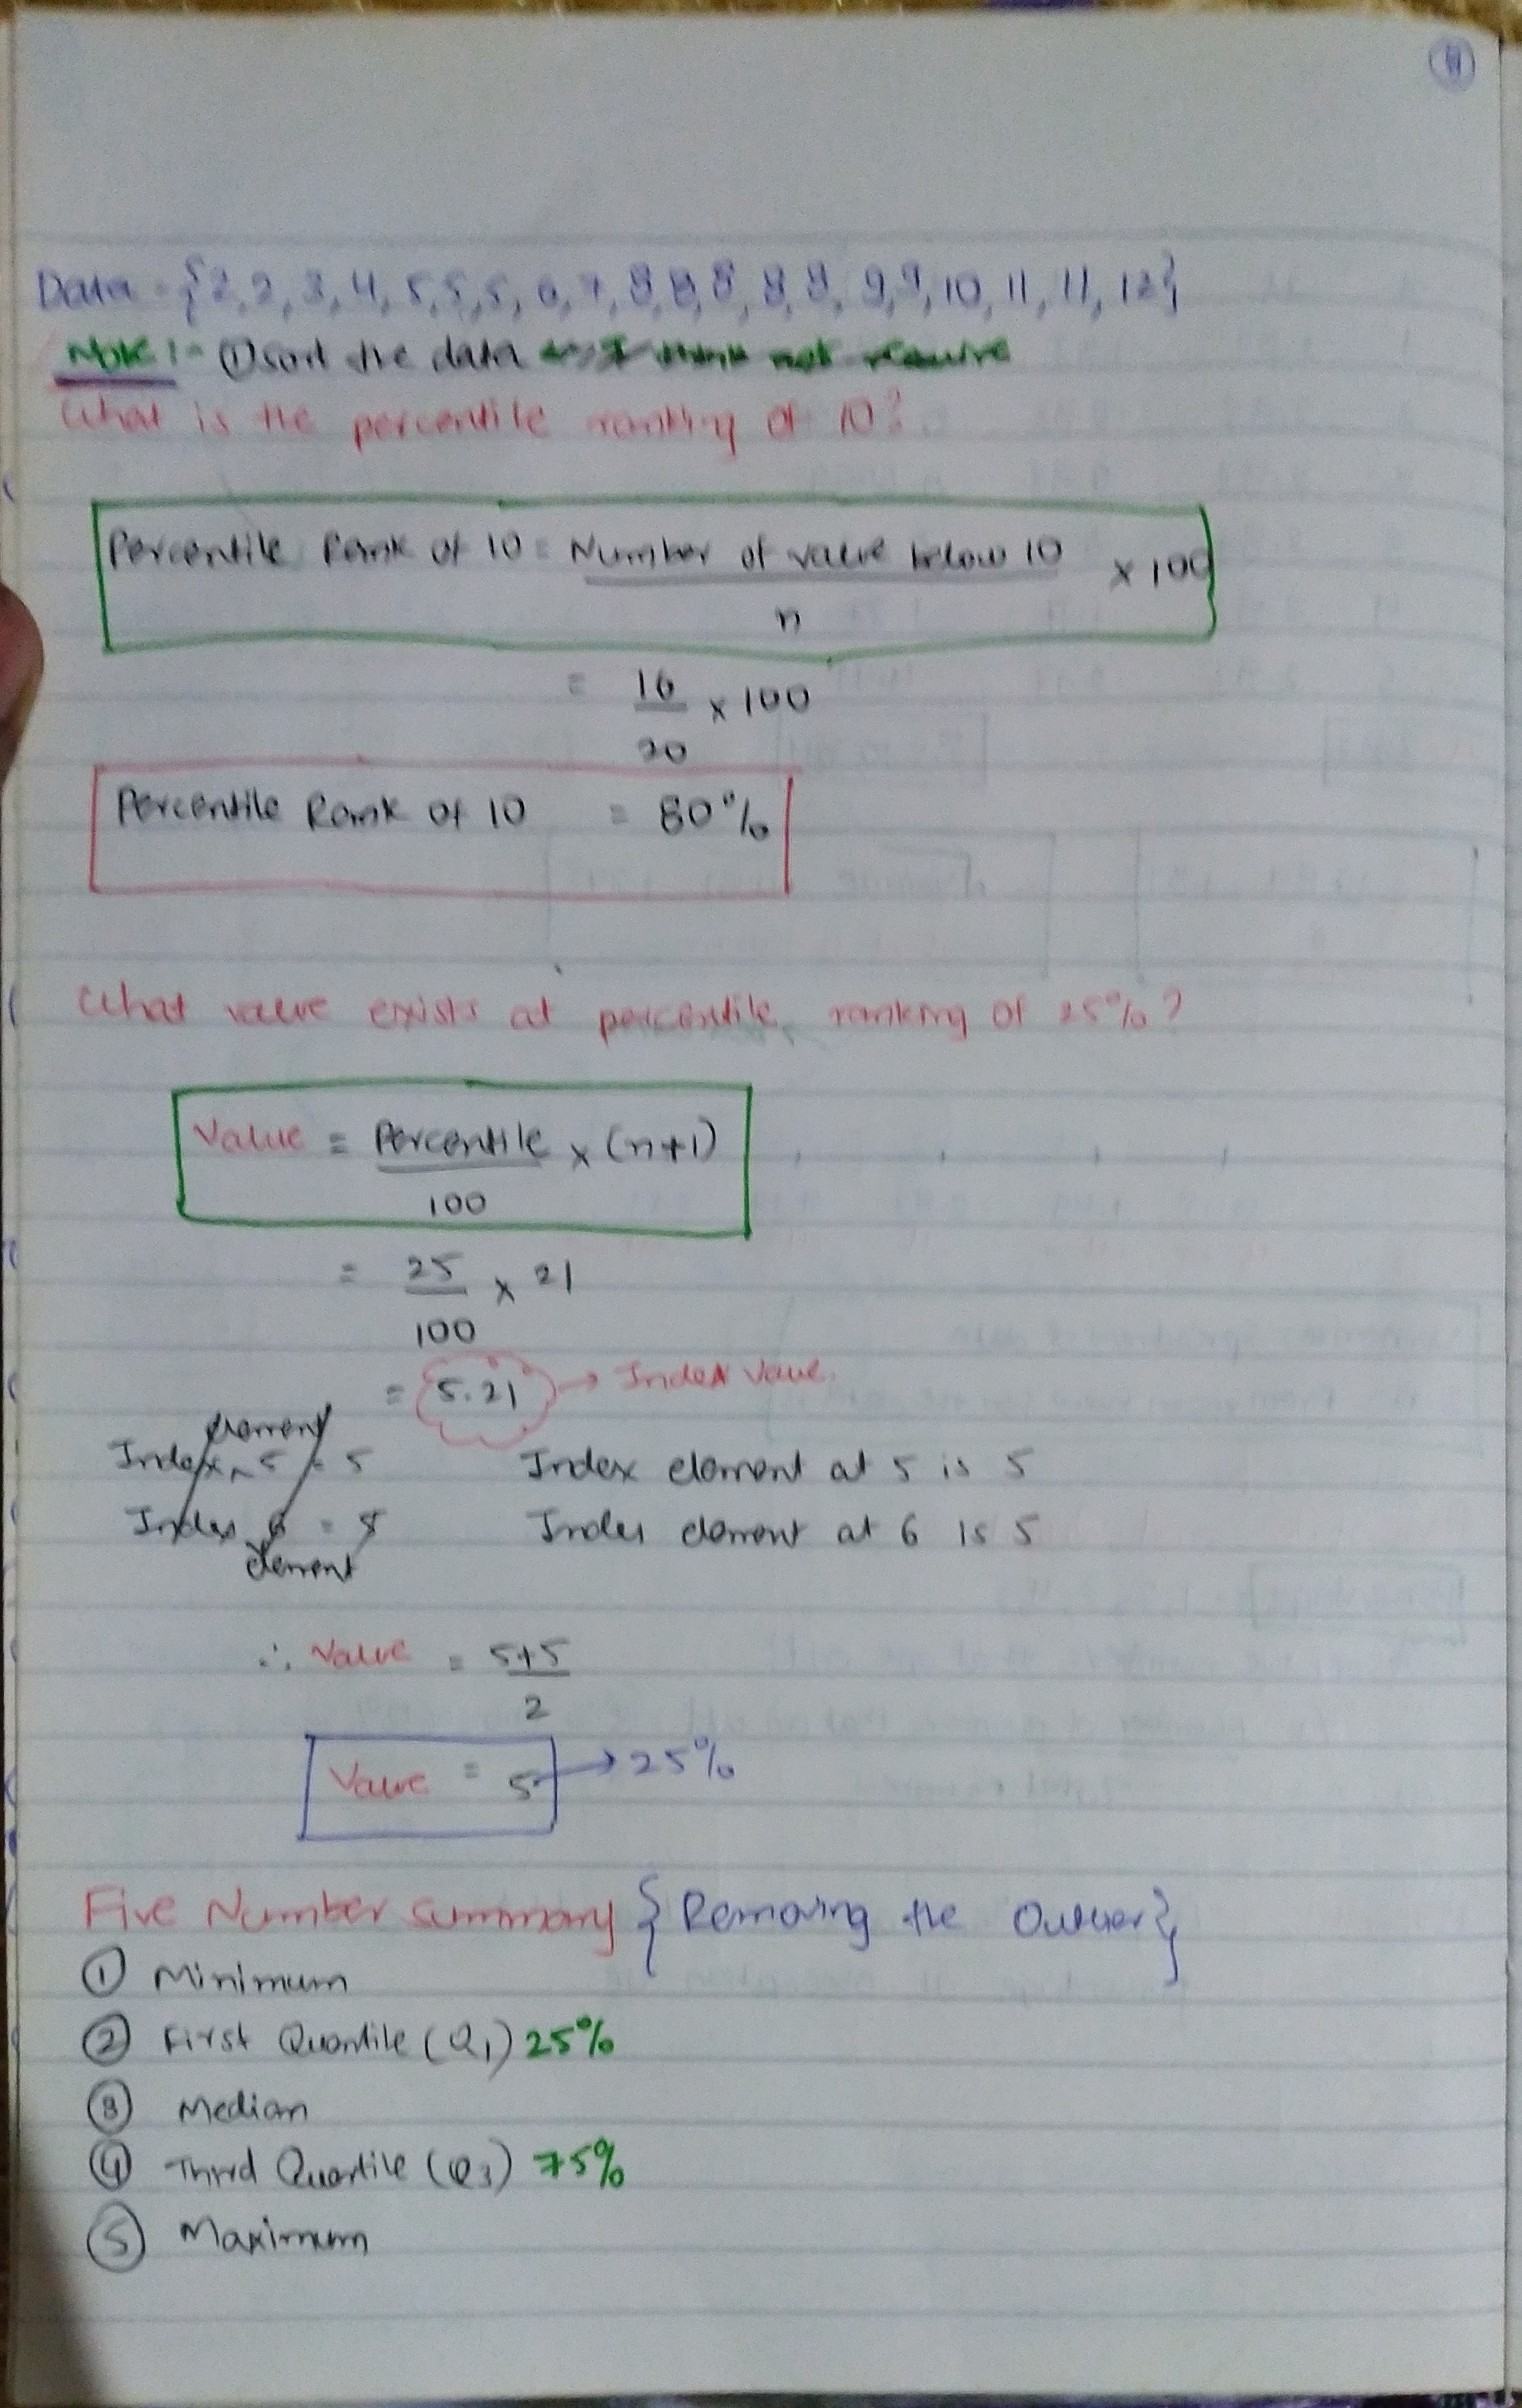 11
Data = {2,2,3,4,5,5,5,6,7,8,8,8,8,8,9,9,10,11,11,12}
Note :- ① sort the data <-- I think not require
What is the percentile ranking of 10?
Percentile Rank of 10 = Number of value below 10 / n × 100
= 16/20 × 100
Percentile Rank of 10 = 80%
What value exists at percentile ranking of 25%?
Value = Percentile/100 × (n+1)
= 25/100 × 21
= 5.21 → Index value
Index element 5 = 5 Index element at 5 is 5
Index element 6 = 5 Index element at 6 is 5
∴ Value = 5+5/2
Value = 5 → 25%
Five Number summary {Removing the Outlier}
① Minimum
② First Quartile (Q1) 25%
③ Median
④ Third Quartile (Q3) 75%
⑤ Maximum